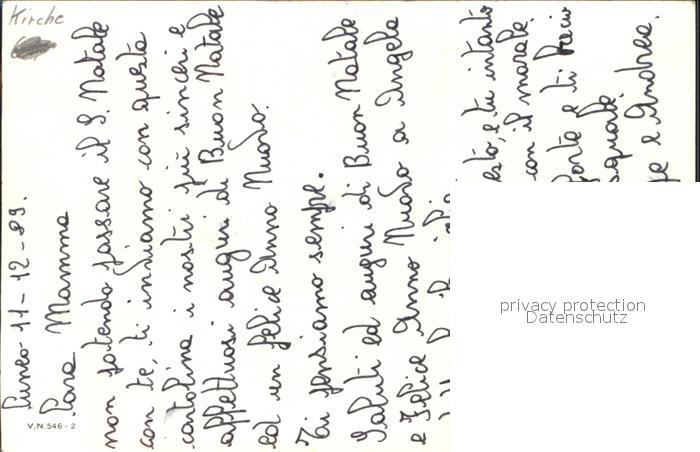 Kirche
Cuneo 11-12-89.
Cara Mamma
non potendo passare il S. Natale
con te, ti inviamo con questa
cartolina i nostri più sinceri e
affettuosi auguri di Buon Natale
ed un felice Anno Nuovo.
Ti pensiamo sempre.
Saluti ed auguri di Buon Natale
e Felice Anno Nuovo a Angela
e tu intanto
con il morale
forte e ti
e Andrea.
V.N.546 - 2
privacy protection
Datenschutz